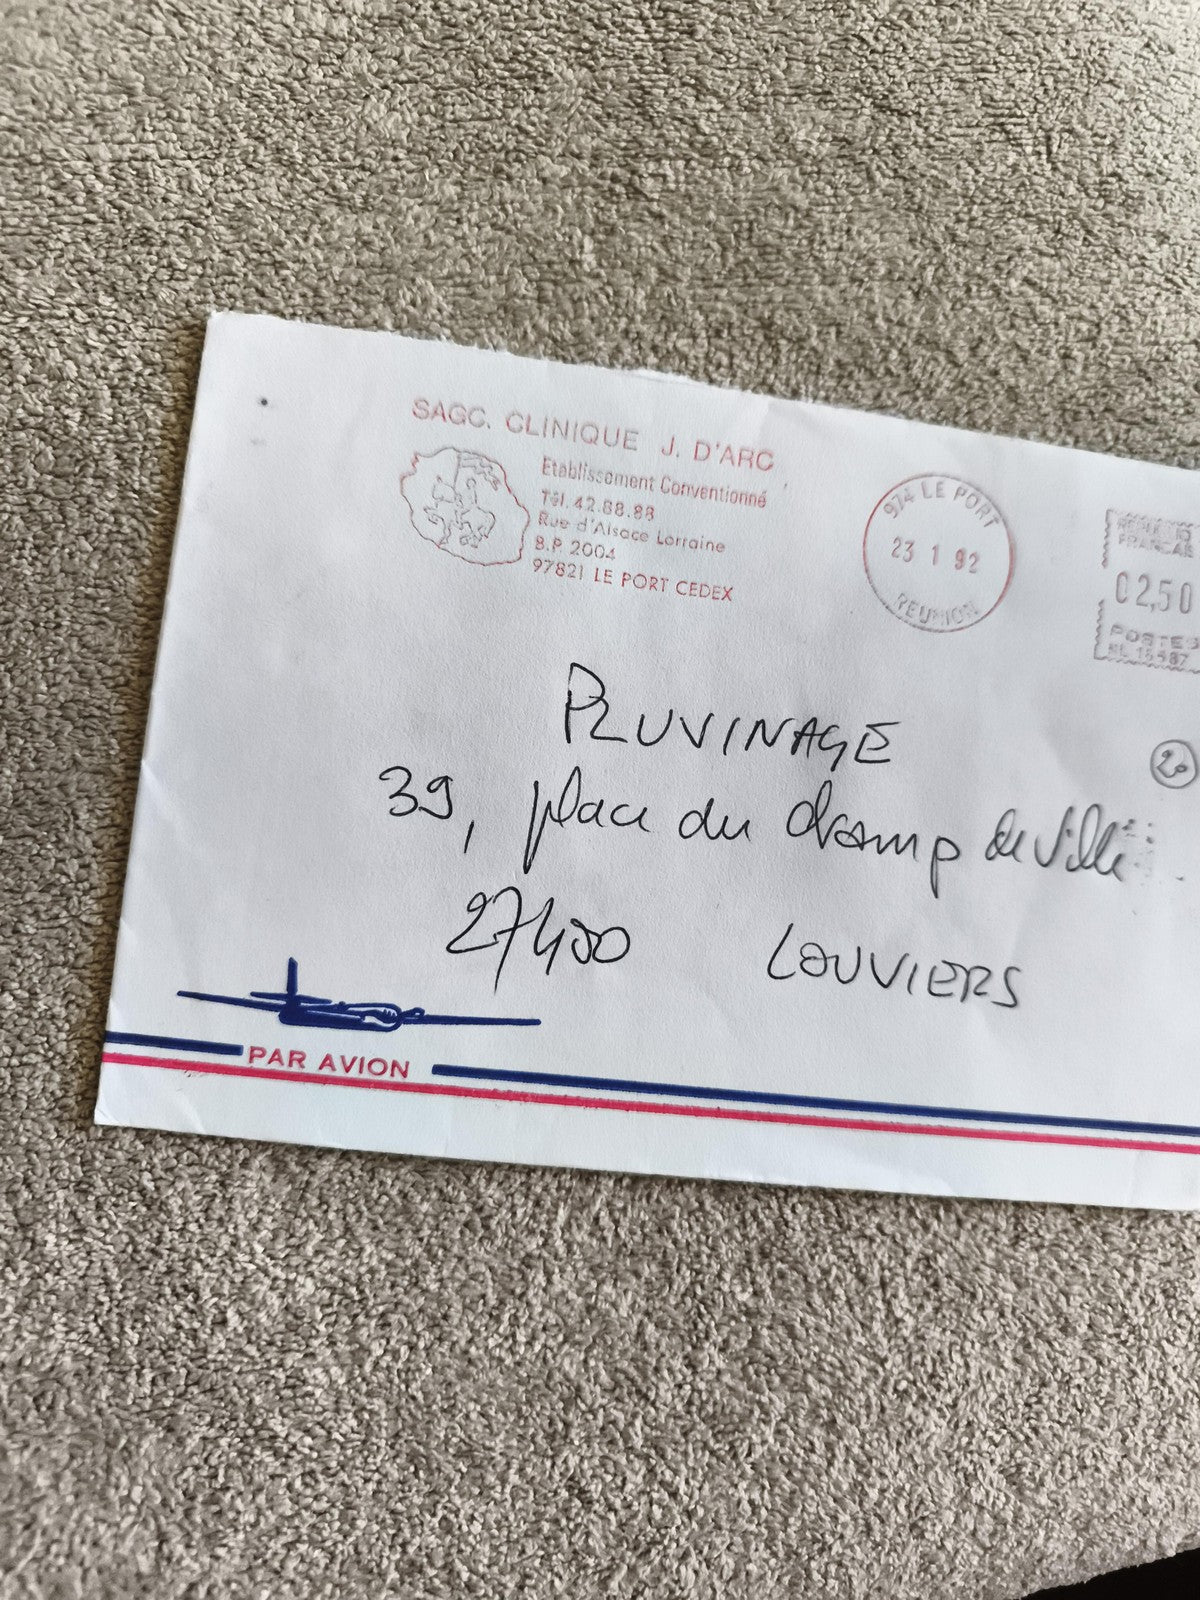 SAGC. CLINIQUE J. D'ARC
Etablissement Conventionné
Tél. 42.88.88
Rue d'Alsace Lorraine
B.P. 2004
97821 LE PORT CEDEX
974 LE PORT
23 1 92
REUNION
FRANCAIS
02,50
POSTES
PLUVINAGE
20
39, place du champ de ville
27400 LOUVIERS
PAR AVION